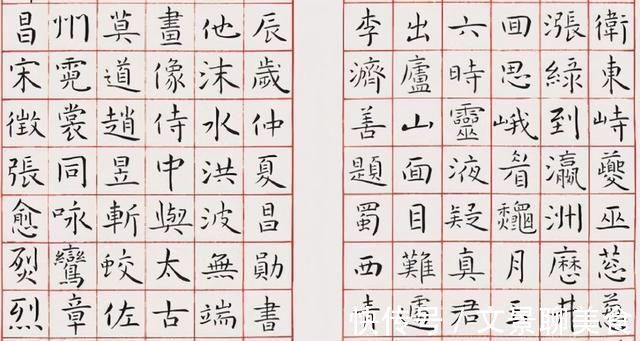 衛東峙夔巫慈
漲綠到瀛洲井
囬思峨睂龝月
六時靈液疑真君
出廬山面目難
李濟善題蜀西
辰歲仲夏昌勛書
他沫水洪波無端
畫像侍中與太古
莫道趙昱斬蛟佐
州霓裳同咏鸞章
昌宋徵張愈烈
快传号 / 文景聊美食